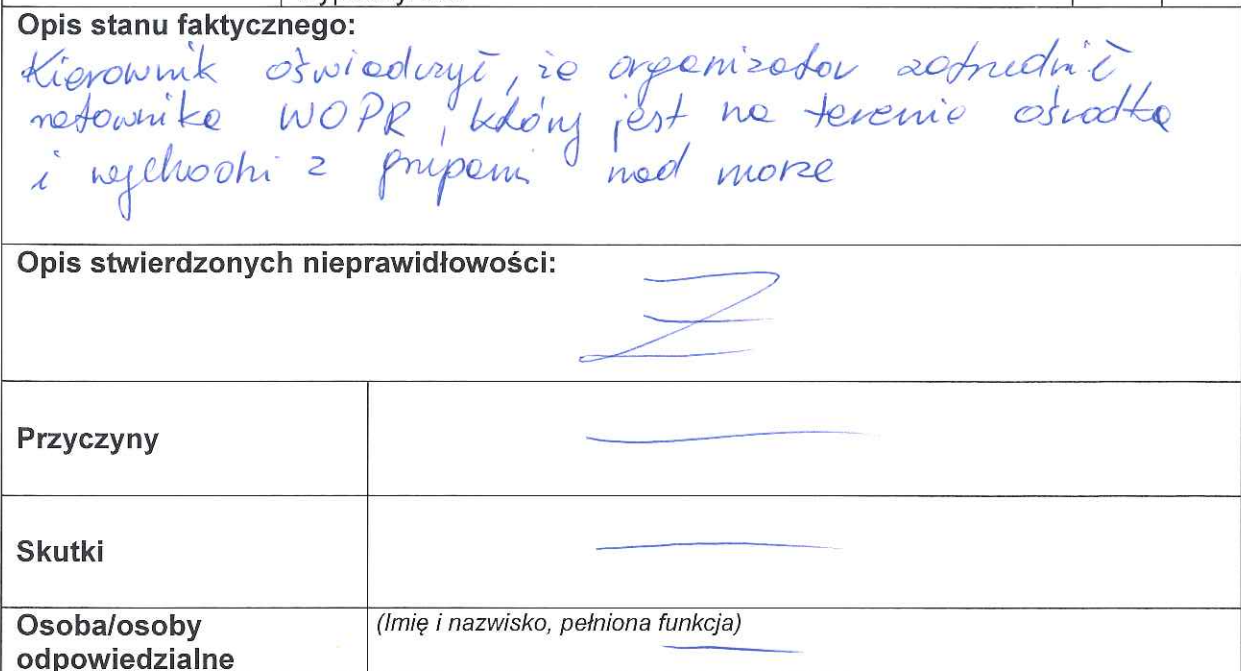 Opis stanu faktycznego:
Kierownik oświadczył, że organizator zatrudnił
ratownika WOPR, który jest na terenie ośrodka
i wychodzi z grupami nad morze
Opis stwierdzonych nieprawidłowości:
Przyczyny
Skutki
Osoba/osoby
odpowiedzialne
(Imię i nazwisko, pełniona funkcja)